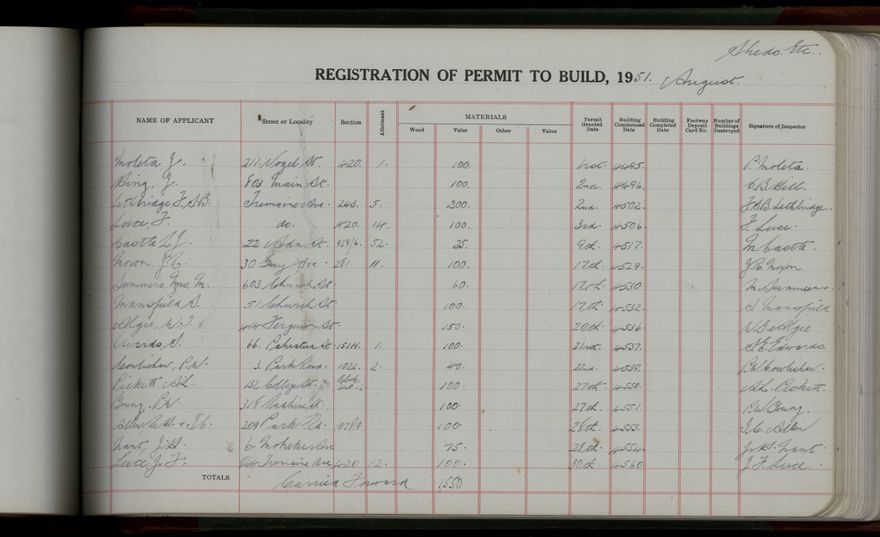 Sheds Etc.
REGISTRATION OF PERMIT TO BUILD, 1951. August.
NAME OF APPLICANT Street or Locality Section Allotment MATERIALS Permit Granted Date Building Commenced Date Building Completed Date Footway Deposit Card No. Number of Buildings Destroyed Signature of Inspector
Wood Value Other Value
Moleta J. 211 Vogel St. 420. 1. 100. 1st. 4495. P. Moleta.
J. 803 Main St. 100. 2nd. 4496.
Lethbridge F.S.B. Tremaine Ave. 243. 5. 200. 2nd. 4502. F.S.B. Lethbridge.
Luce, F. do. 420. 14. 100. 3rd. 4506. F. Luce.
Castle L.J. 22 St. 52. 25. 9th. 4517. M. Castle.
30 Guy Ave. 281 11. 100. 17th. 4529.
Summers Mrs. M. 603 Church St. 60. 17th. 4530. M. Summers.
Mansfield S. 51 Church St. 100. 17th. 4532. S. Mansfield
Algie, W. 414 Ferguson St. 150. 20th. 4536. Algie
66. St. 1. 100. 21st. 4537. Edwards
Cowlishaw, P.W. 3. Park Road. 1022. 2. 40. 22nd. 4538. P.W. Cowlishaw.
Pickett A.L. 132 College St. 100. 27th. 4550. A.L. Pickett.
Young, P.W. 318 St. 100. 27th. 4551. P.W. Young.
209 Park Rd. 100. 28th. 4553. Allen
J.H. 6. Ave 75. 28th. 4554. J.H.
Luce, J.F. Tremaine Ave 420 12. 100. 30th. 4560 J.F. Luce
TOTALS Carried Forward 1550